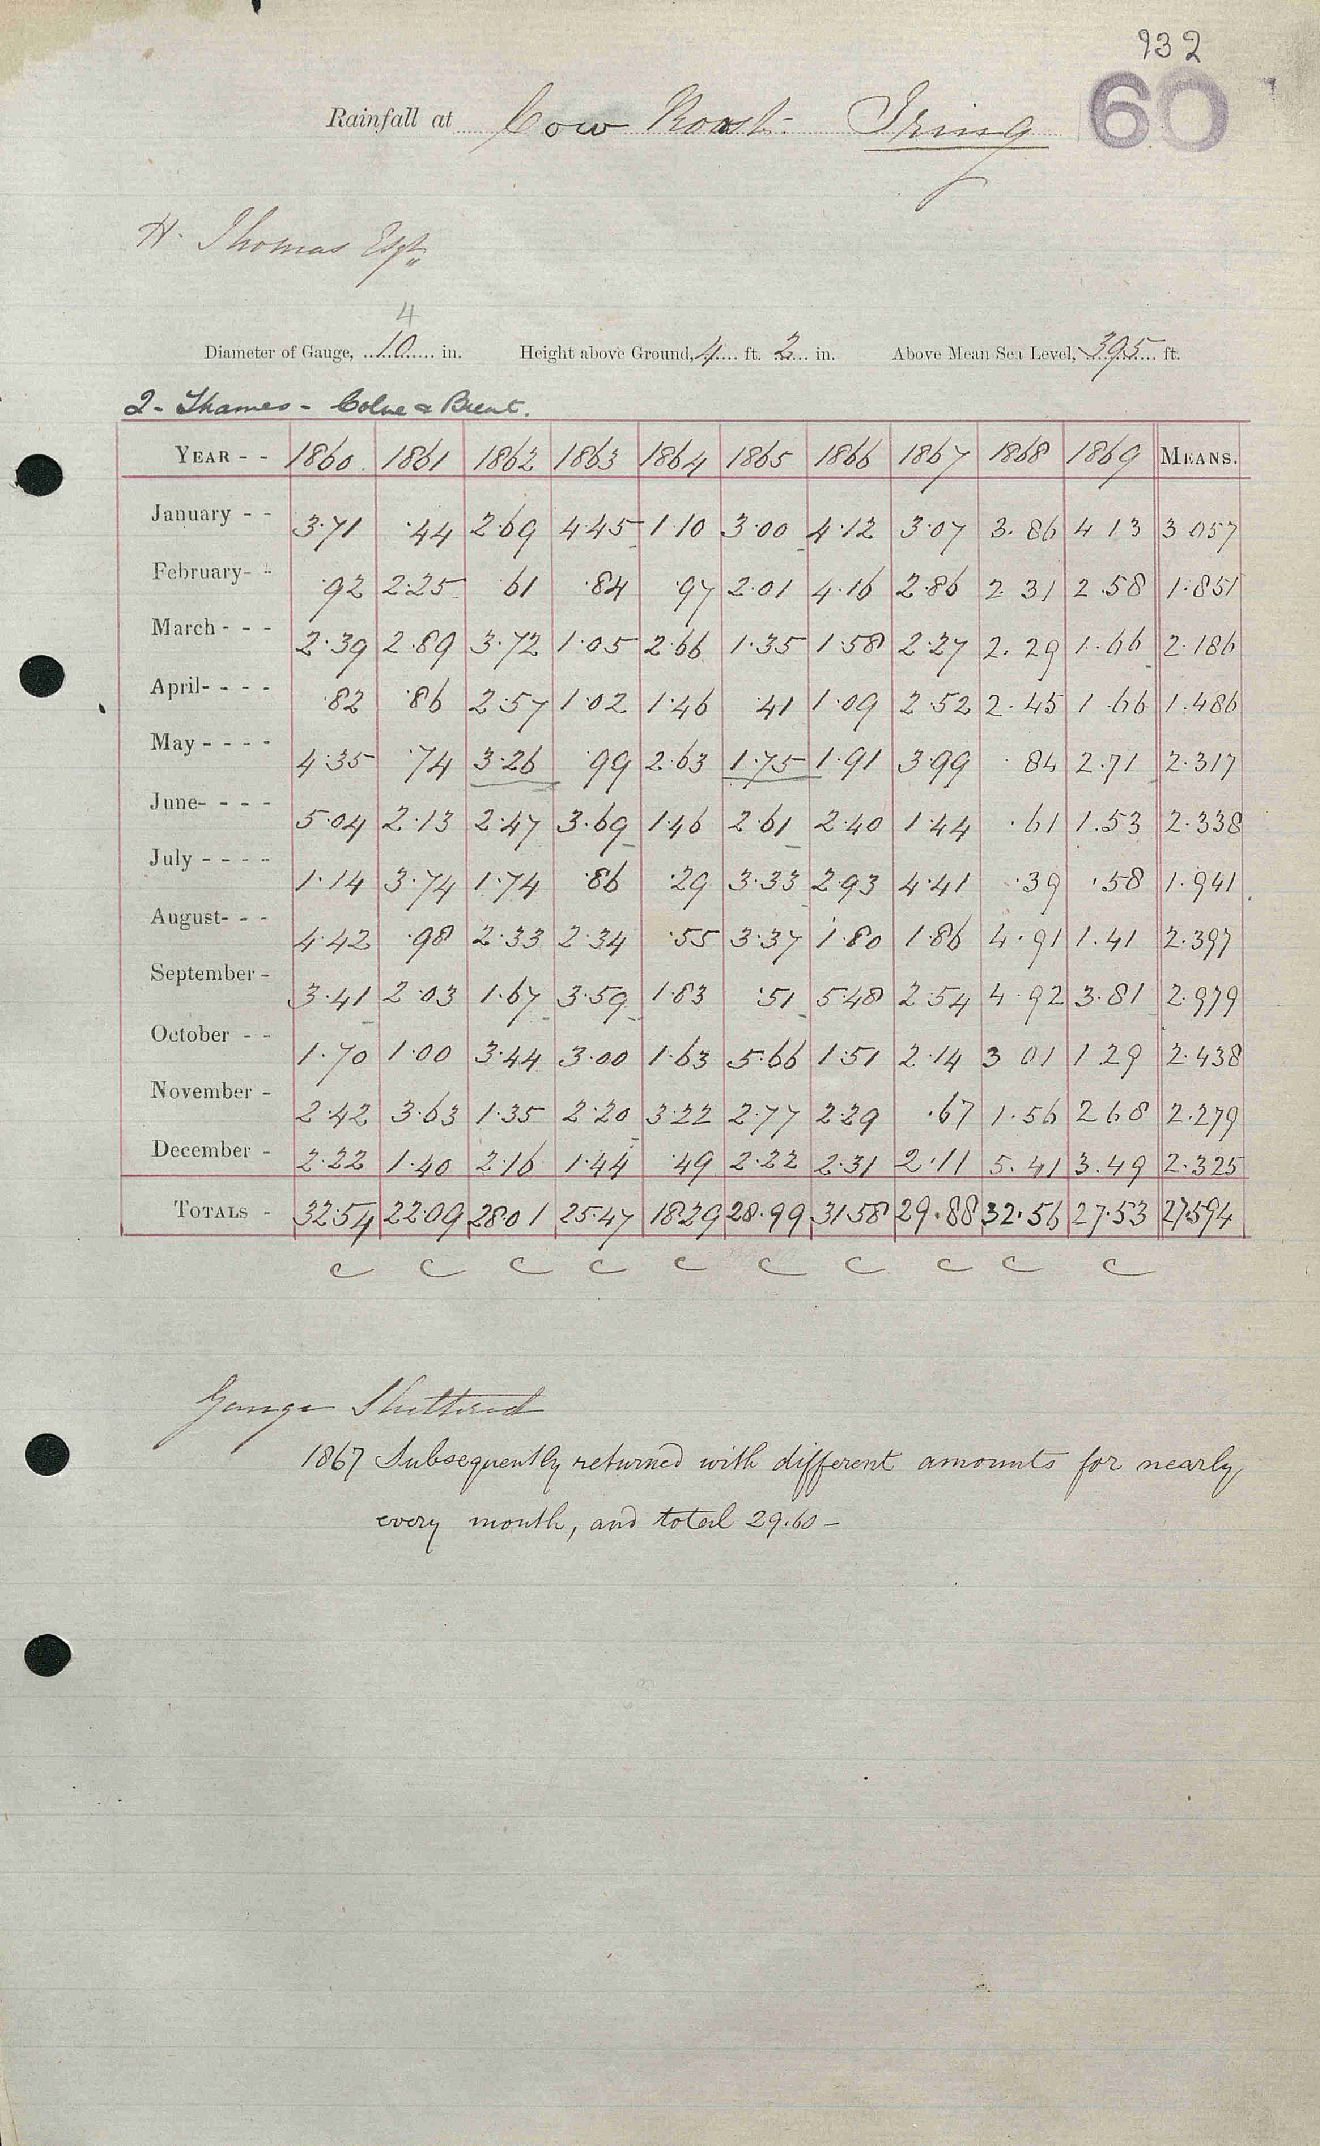 932
60
Rainfall at Cow Roast. Tring
H. Thomas Esqr.
4
Diameter of Gauge, 10 in. Height above Ground, 4 ft. 2 in. Above Mean Sea Level, 395 ft.
2 - Thames - Colne & Brent.
YEAR - - 1860 1861 1862 1863 1864 1865 1866 1867 1868 1869 MEANS.
January - - 3.71 .44 2.69 4.45 1.10 3.00 4.12 3.07 3.86 4 13 3 057
February - - .92 2.25 61 .84 .97 2.01 4.16 2.86 2 31 2.58 1.851
March - - - 2.39 2.89 3.72 1.05 2.66 1.35 1.58 2.27 2.29 1.66 2.186
April - - - - .82 .86 2.57 1.02 1.46 .41 1.09 2.52 2.45 1.66 1.486
May - - - - 4.35 .74 3.26 .99 2.63 1.75 1.91 3.99 .84 2.71 2.317
June - - - - 5.04 2.13 2.47 3.69 1.46 2.61 2.40 1.44 .61 1.53 2.338
July - - - - 1.14 3.74 1.74 .86 .29 3.33 2.93 4.41 .39 .58 1.941
August - - - 4.42 .98 2.33 2.34 .55 3.37 1.80 1.86 4.91 1.41 2.397
September - 3.41 2.03 1.67 3.59 1.83 .51 5.48 2.54 4.92 3.81 2.979
October - - 1.70 1.00 3.44 3.00 1.63 5.66 1.51 2.14 3 01 1 29 2.438
November - 2.42 3.63 1.35 2.20 3.22 2.77 2.29 .67 1.56 2 68 2.279
December - 2.22 1.40 2.16 1.44 .49 2.22 2.31 2.11 5.41 3.49 2.325
TOTALS - 32.54 22.09 28.01 25.47 18.29 28.99 31.58 29.88 32.56 27.53 27.594
c c c c c c c c c c
1867 Subsequently returned with different amounts for nearly
every month, and total 29.60 -